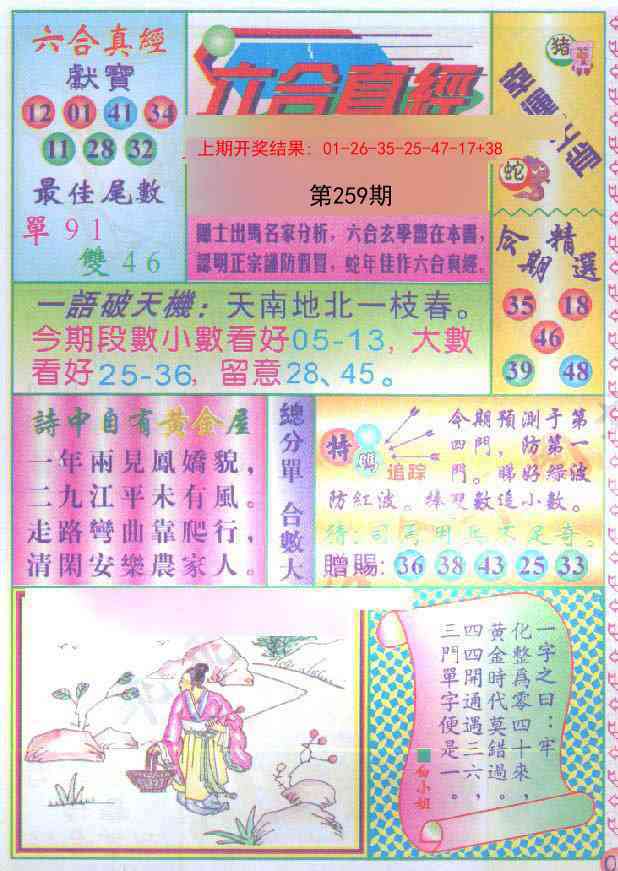 六合真經
獻寶
12 01 41 34
11 28 32
最佳尾數
單91
雙46
六合真經
上期开奖结果：01-26-35-25-47-17+38
第259期
師士出馬名家分析，六合玄學盡在本書，
認明正宗謹防假冒，蛇年佳作六合真經。
猪
蛇
今期精選
35 18
46
39 48
一語破天機：天南地北一枝春。
今期段數小數看好05-13，大數
看好25-36，留意28、45。
詩中自有黃金屋
一年兩見鳳嬌貌，
二九江平未有風。
走路彎曲靠爬行，
清閑安樂農家人。
總分單 合數大
特碼
追踪
今期預測于第
四門，防第一
門。睇好綠波
防紅波。捧雙數追小數。
猜：司馬田
足奇。
贈賜：36 38 43 25 33
一字之曰：牢
化整爲零四十來，
黃金時代莫錯過。
四四開通遇三六，
三門單字便是一。
白小姐